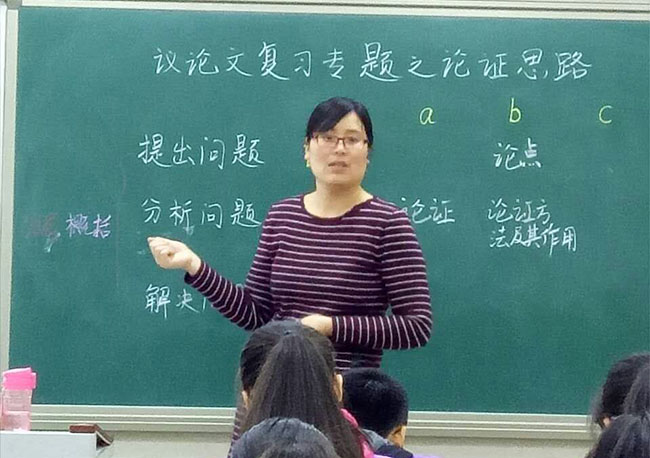 议论文复习专题之论证思路
a b c
提出问题 论点
概括 分析问题 论证 论证方
法及其作用
解决